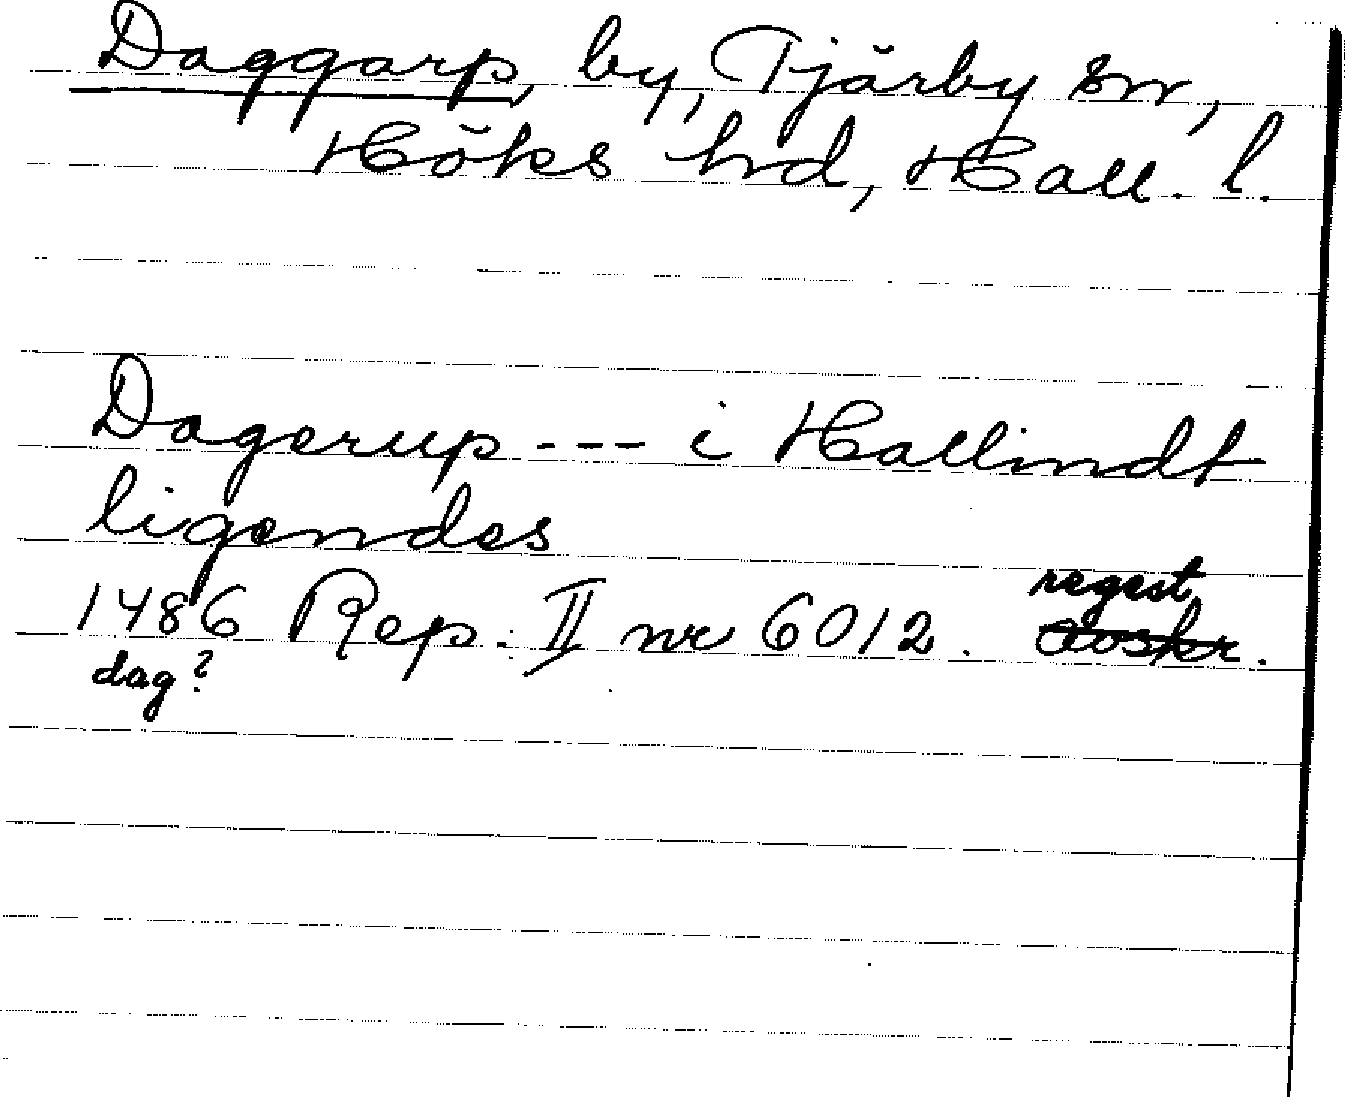 Daggarp, by, Tjärby sn,
Höks hd, Hall. l.
Dagerup --- i Hallindt
ligendes
regest
1486 Rep. II nr 6012. avskr.
dag?